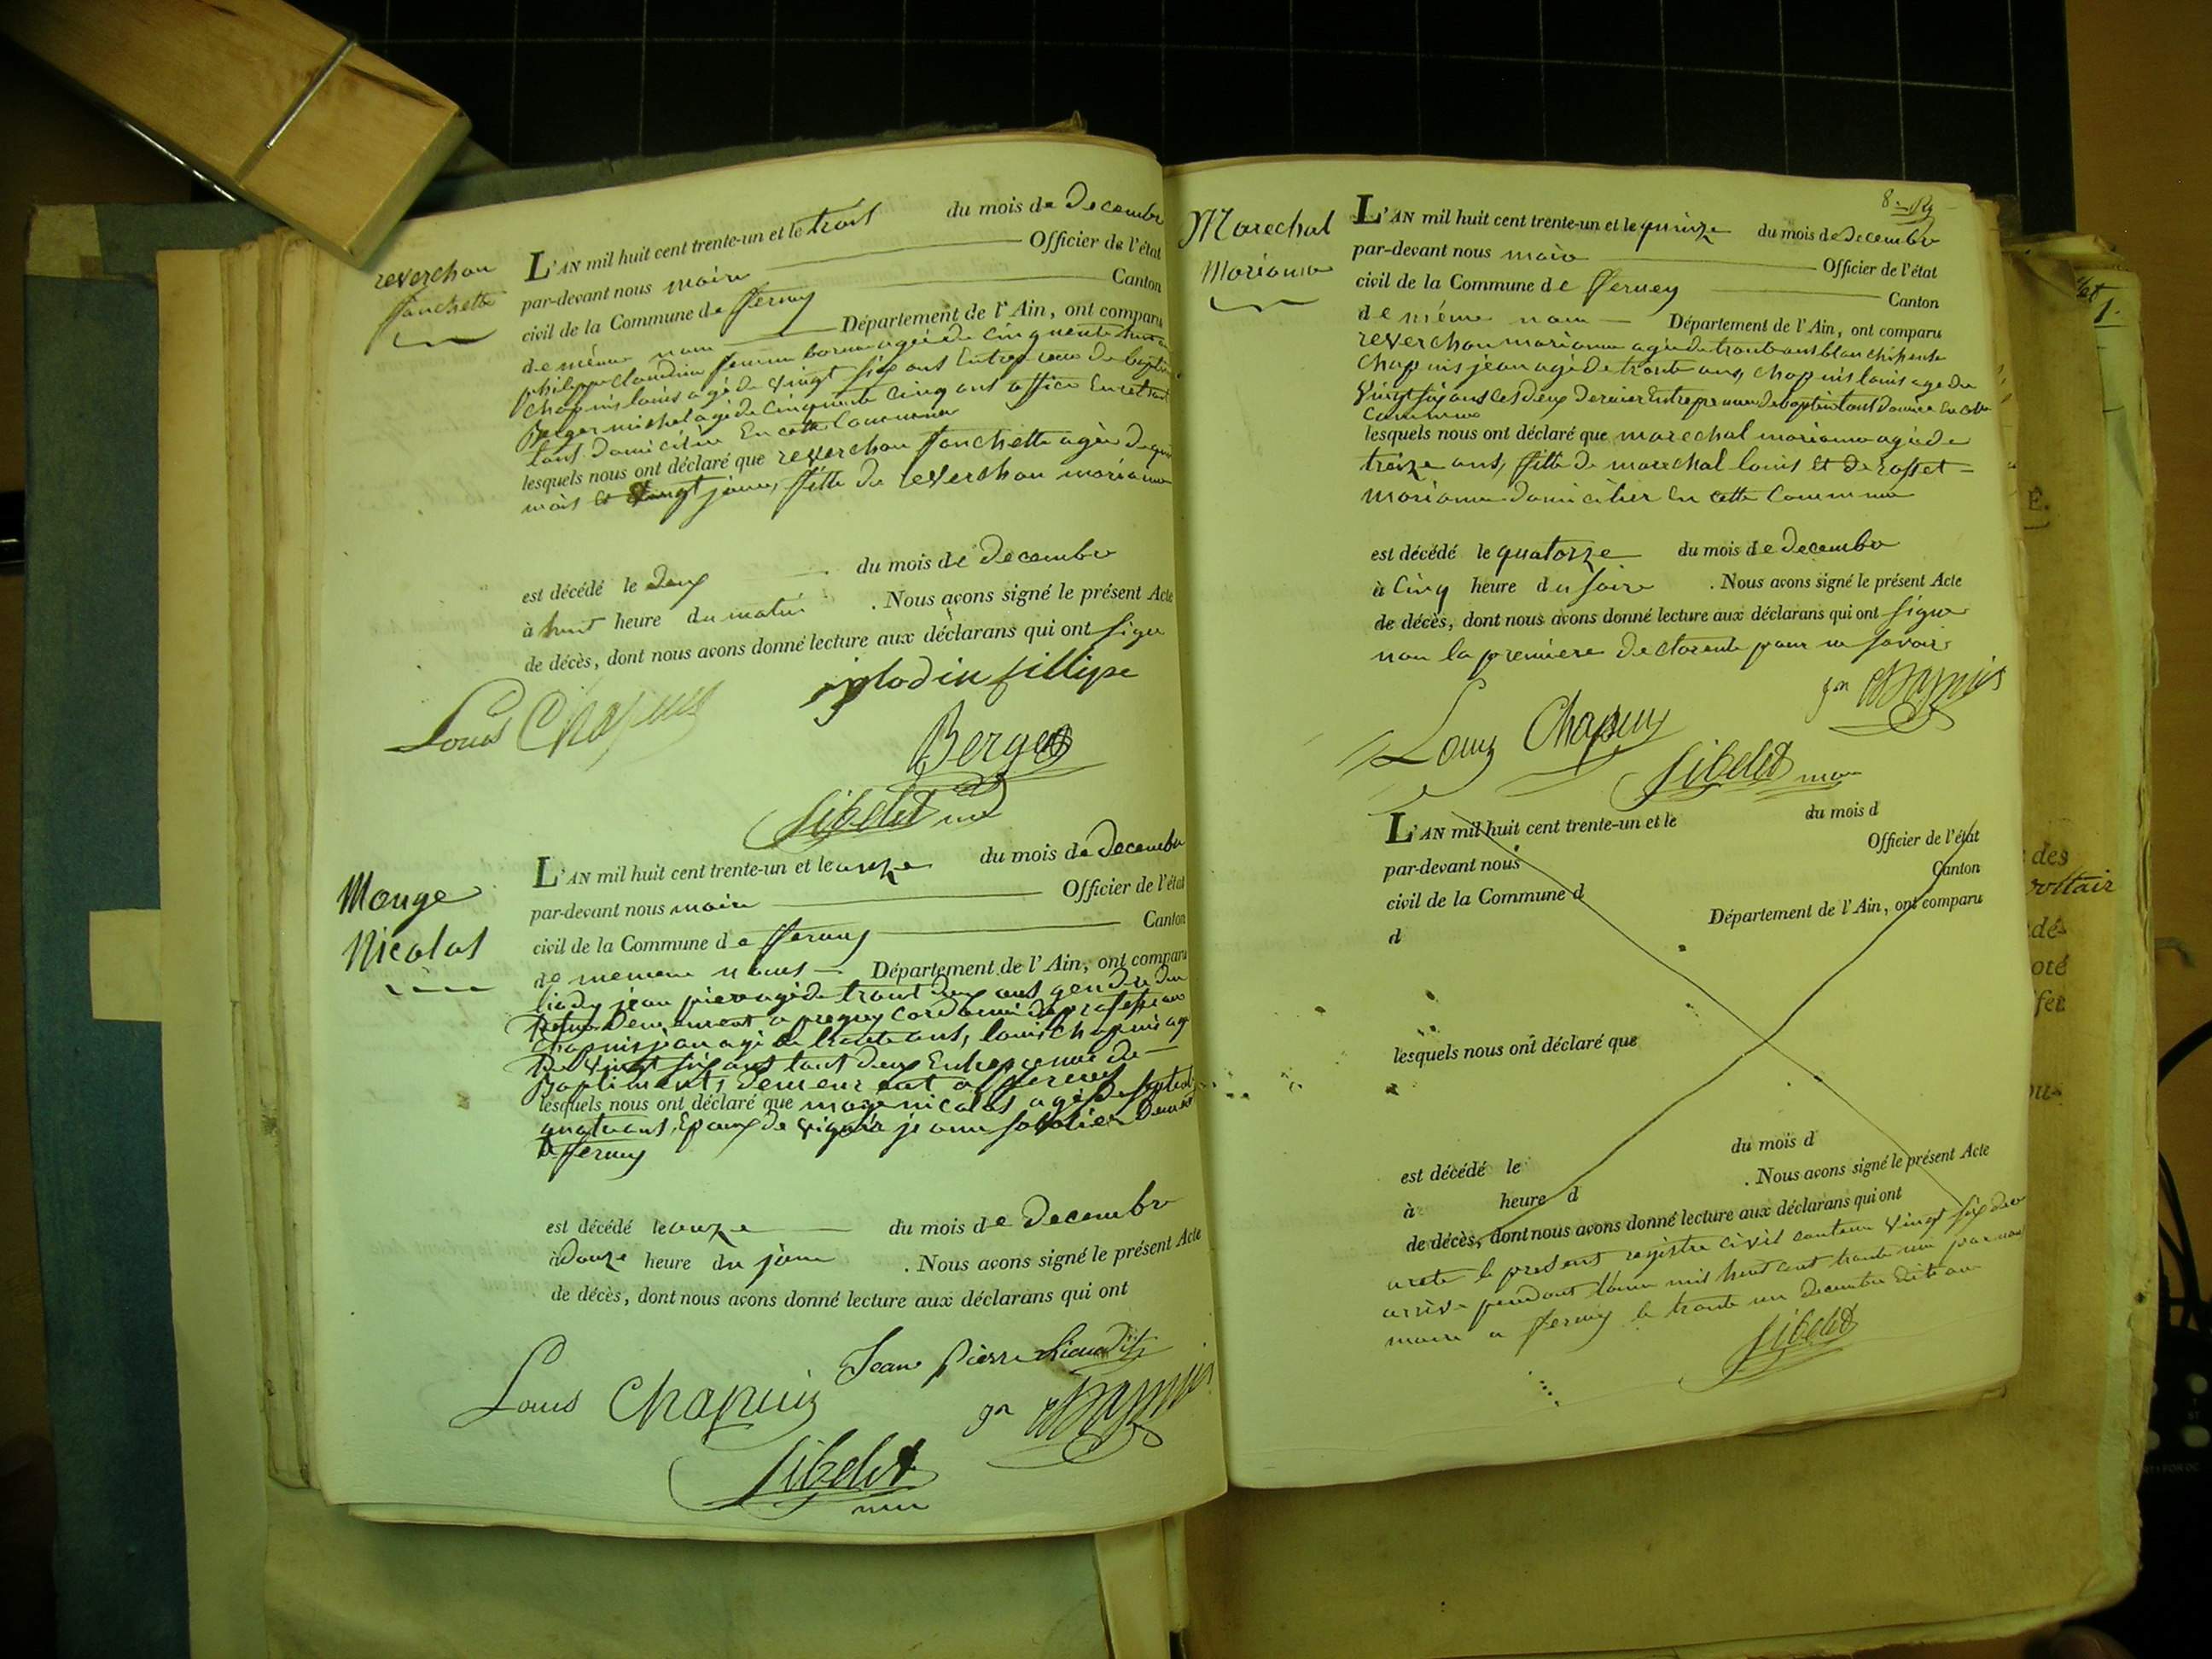 reverchon
fanchette
L'AN mil huit cent trente-un et le trois du mois de Decembre
par-devant nous maire Officier de l'état
civil de la Commune de ferney Canton
de même nom Département de l'Ain, ont comparu
philippe Claudine femme borne agée de cinquente huit
Chapuis louis agé de vingt six ans Entrepreneur de
Berger michel agé de cinquente cinq ans officier En retrait
tous domicilié En cette Commune
lesquels nous ont déclaré que reverchon fanchette agée de
mois et vingt jours, fille de reverchon marianne
est décédé le deux du mois de Decembre
à huit heure du matin . Nous avons signé le présent Acte
de décès, dont nous avons donné lecture aux déclarans qui ont signé
glodin fillipe
Louis Chapuis
Berger
Sibelet
Monge
Nicolas
L'AN mil huit cent trente-un et le onze du mois de Decembre
par-devant nous maire Officier de l'état
civil de la Commune de ferney Canton
de meme noms Département de l'Ain, ont comparu
jean pierre agé de trente deux ans gendre du
Chapuis jean agé de trente ans, louis Chapuis agé
De vingt six ans tout deux Entreprenneur de
Batiments, demeurent a ferney
lesquels nous ont déclaré que monge nicolas agé de
quatre ans, Epoux de jeanne sabotier
a ferney
est décédé le onze du mois de Decembre
à douze heure du jour . Nous avons signé le présent Acte
de décès, dont nous avons donné lecture aux déclarans qui ont
Jean pierre
Louis Chapuis
Sibelet
Marechal
Marianne
L'AN mil huit cent trente-un et le quinze du mois de Decembre
par-devant nous maire Officier de l'état
civil de la Commune de ferney Canton
de même nom Département de l'Ain, ont comparu
reverchon marianne agée de trente ans blanchisseuse
Chapuis jean agé de trente ans, Chapuis louis agé de
vingt six ans les deux dernier Entrepreneur de
Commune
lesquels nous ont déclaré que marechal marianne agée de
treize ans, fille de marechal louis et de rosset
marianne domicilier En cette Commune
est décédé le quatorze du mois de Decembre
à Cinq heure du soire . Nous avons signé le présent Acte
de décès, dont nous avons donné lecture aux déclarans qui ont signe
non la premiere declarente pour ne savoir
Louis Chapuis
Sibelet
L'AN mil huit cent trente-un et le du mois d
par-devant nous Officier de l'état
civil de la Commune d Canton
d Département de l'Ain, ont comparu
lesquels nous ont déclaré que
est décédé le du mois d
à heure d . Nous avons signé le présent Acte
de décès, dont nous avons donné lecture aux déclarans qui ont
arete le present registre civil contenu vingt six
arrivé pendant lanné mil huit cent trente une par nous
maire a ferney le trente un decembre dit an
Sibelet